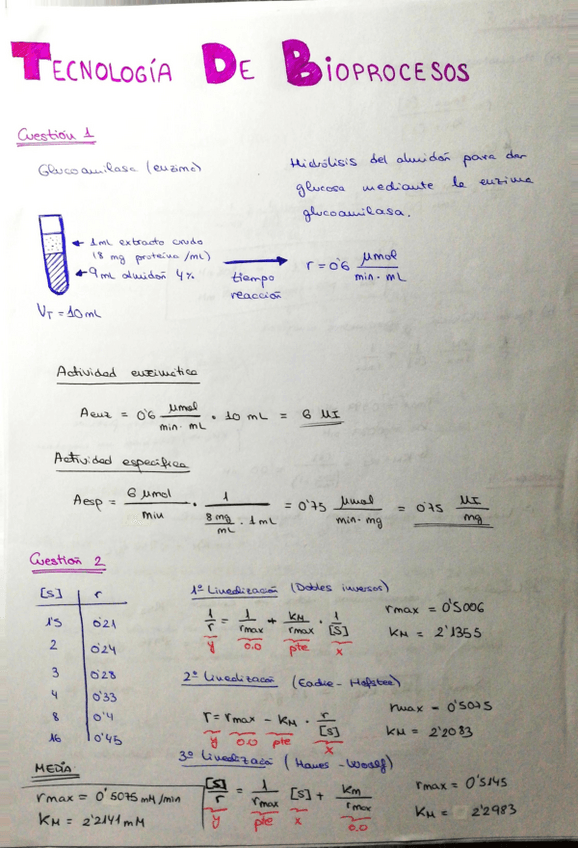 TECNOLOGÍA DE BIOPROCESOS
Cuestión 1
Glucoamilasa (enzima)
Hidrólisis del almidón para dar
glucosa mediante la enzima
glucoamilasa.
1mL extracto crudo
(8 mg proteína/mL)
9mL almidón 4%
VT = 10mL
tiempo
reacción
r = 0'6 μmol / min · mL
Actividad enzimática
Aenz = 0'6 μmol / min · mL · 10 mL = 6 μI
Actividad específica
Aesp = 6 μmol / min · 1 / (8 mg / mL · 1 mL) = 0'75 μmol / min · mg = 0'75 μI / mg
Cuestión 2
[S] r
1'5 0'21
2 0'24
3 0'28
4 0'33
8 0'4
16 0'45
1ª Linealización (Dobles inversos)
1/r = 1/rmax + KM/rmax · 1/[S]
y o.o pte x
rmax = 0'5006
KM = 2'1355
2ª Linealización (Eadie-Hofstee)
r = rmax - KM · r/[S]
y o.o pte x
rmax = 0'5075
KM = 2'2083
3ª Linealización (Hanes-Woolf)
[S]/r = 1/rmax [S] + KM/rmax
y pte x o.o
rmax = 0'5145
KM = 2'2983
MEDIA
rmax = 0'5075 mM/min
KM = 2'2141 mM